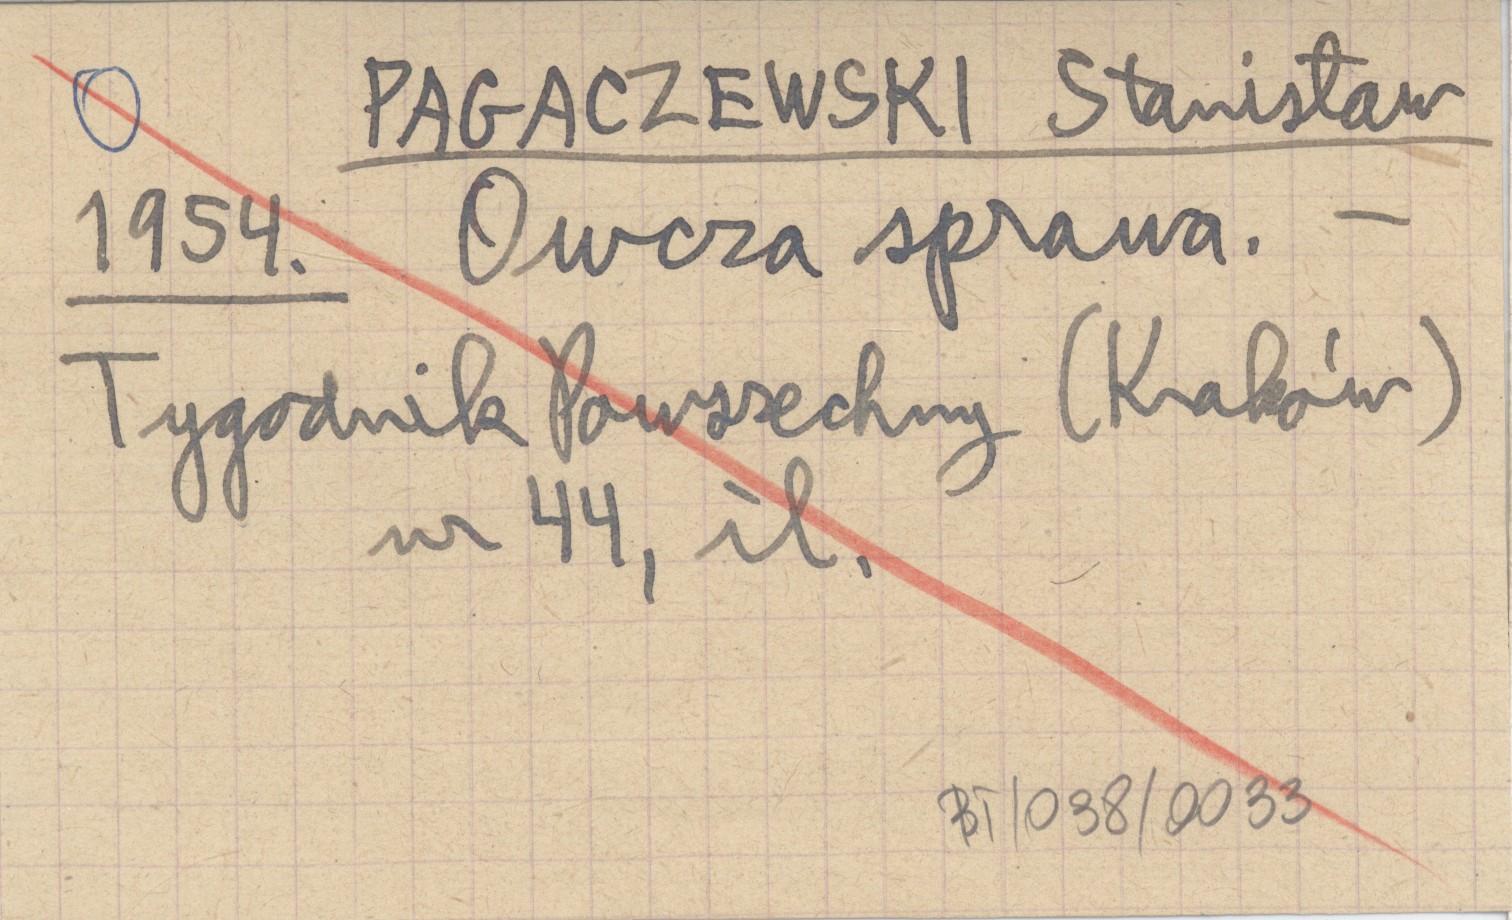 PAGACZEWSKI Stanisław
1954. Owcza sprawa. –
Tygodnik Powszechny (Kraków)
nr 44, il.
BT/038/0033